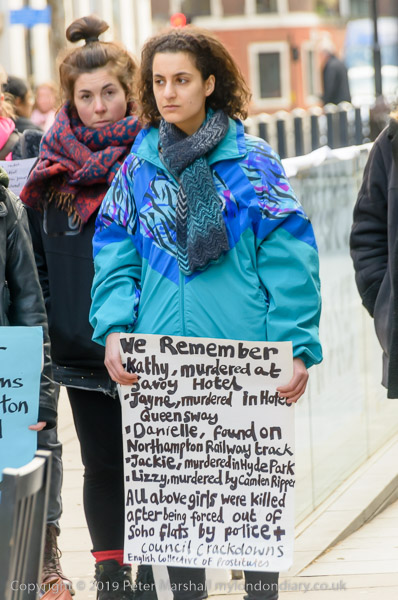 We Remember
·Kathy, murdered at
Savoy Hotel
·Jayne, murdered in Hotel
Queensway
·Danielle, found on
Northampton Railway track
·Jackie, murdered in Hyde Park
·Lizzy, murdered by Camden Ripper
All above girls were killed
after being forced out of
Soho flats by police +
council Crackdowns
English Collective of Prostitutes
Copyright © 2019 Peter Marshall mylondondiary.co.uk